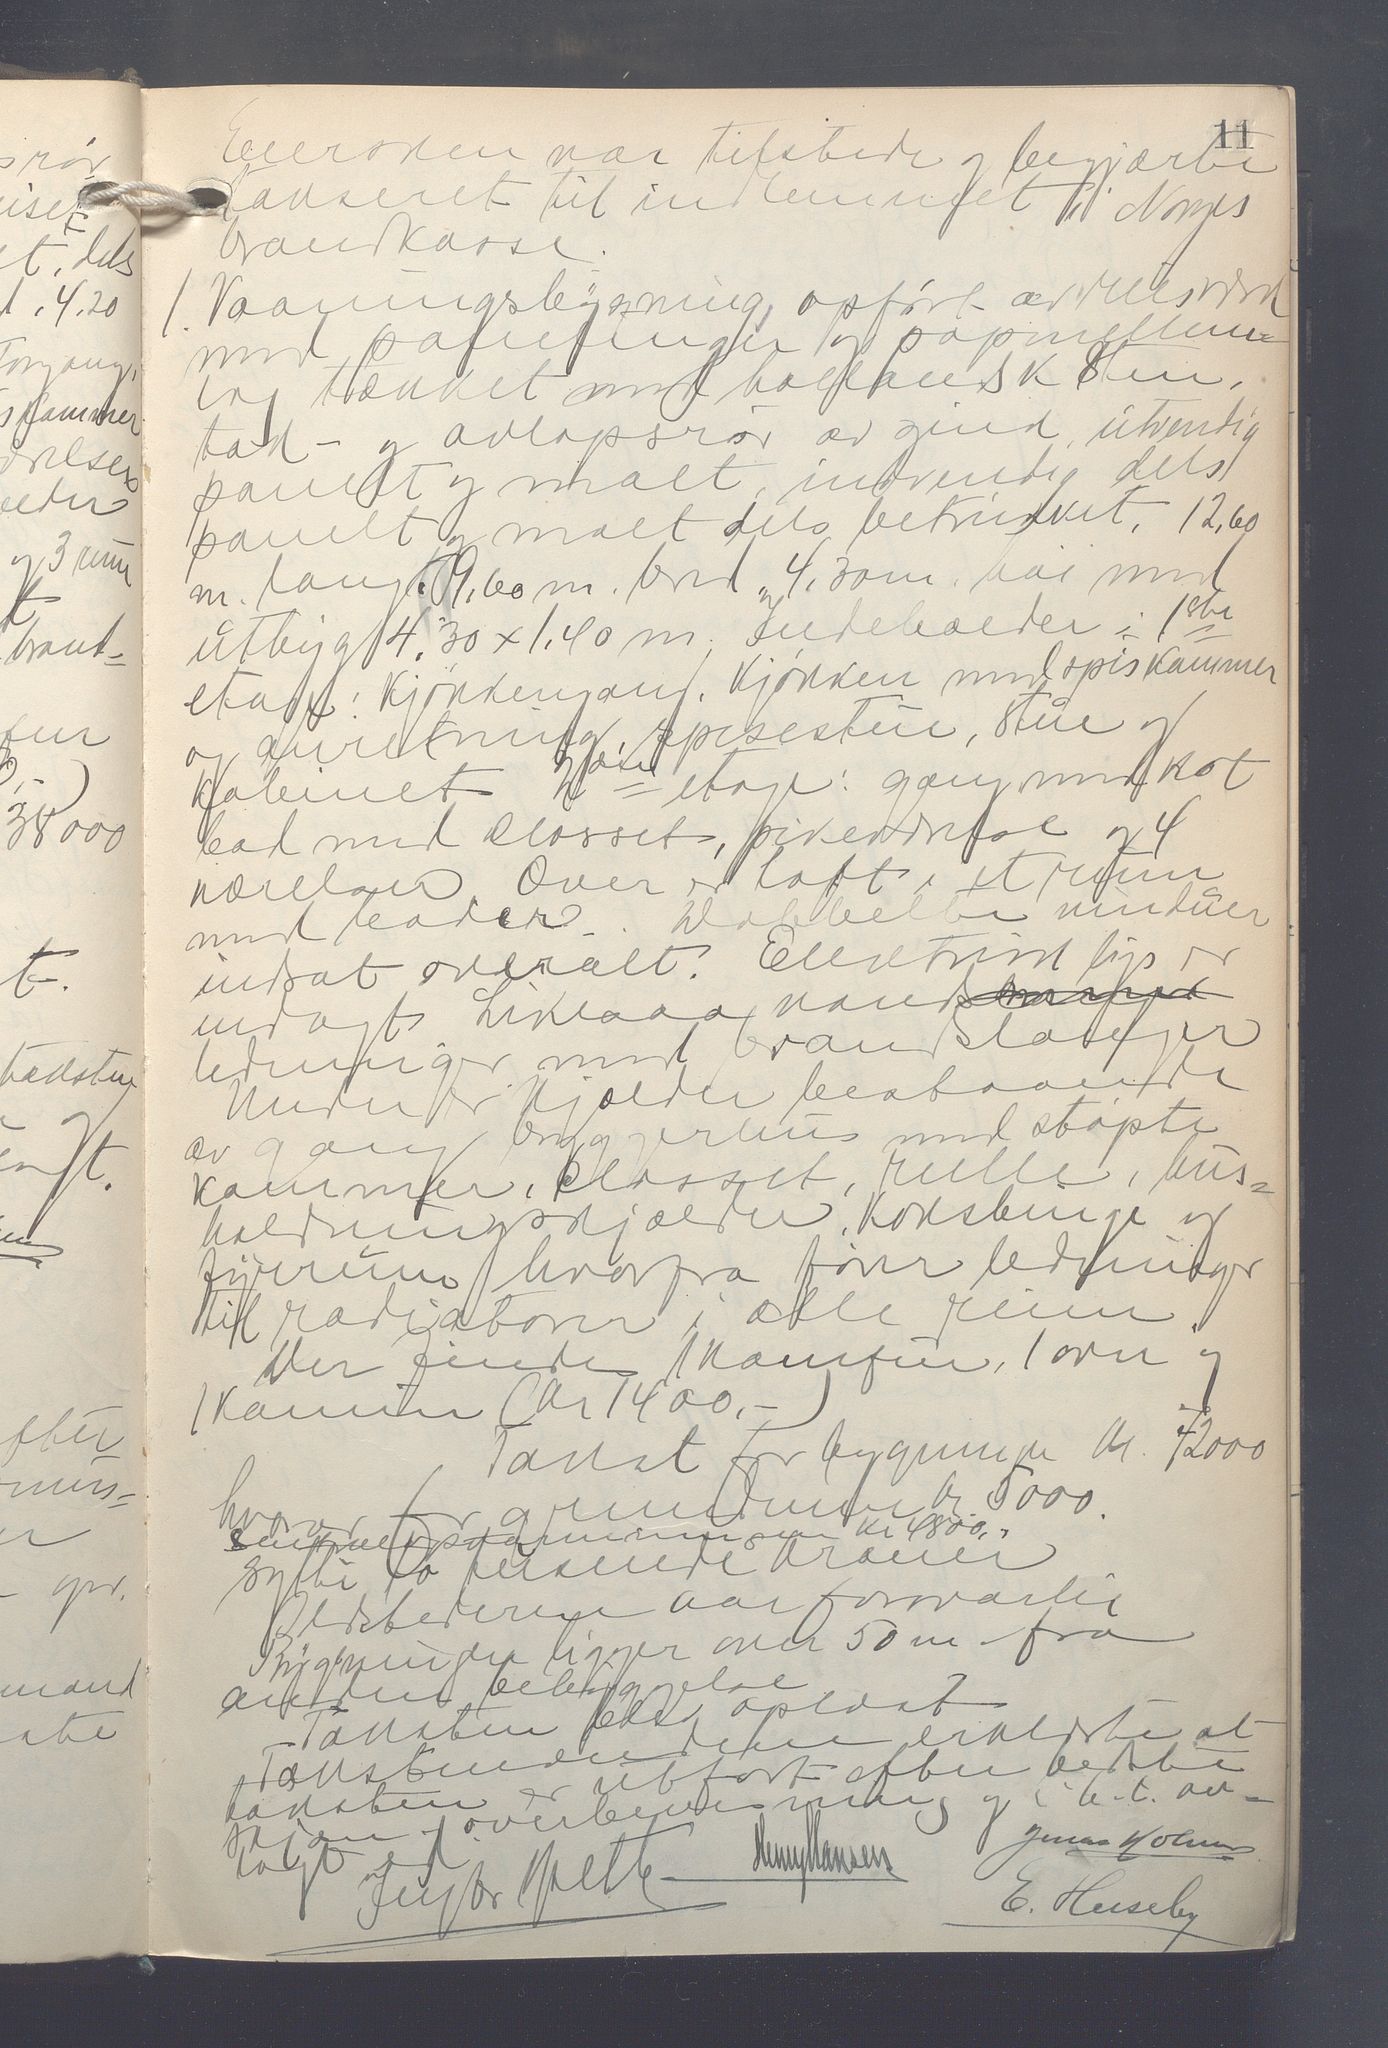 11
Eieren var tilstede og begjærte
takseret til indlemmet i Norges
brandkasse.
1. Vaaningsbygning, opført av reisverk
med panelinger og papmellem=
lag tækket med hollandsk sten,
tak- og avløpsrør av zink, utvendig
panelt og malt, indvendig dels
panelt og malt dels betrukket. 12,60
m. lang. 9,60 m. bred og 4,30 m. høi med
utbyg 4,30 x 1,40 m. Indeholder i 1ste
etage: Kjøkkengang, kjøkken med spiskammer
og anretning, spisestue, stue og
kabinet 2den etage: gang med kot
bad med closset, pikeværelse og 4
værelser. Over er loft i et rum
med boder. Dobbelte vinduer
indsat overalt. Elektrisk lys er
indlagt Likesaa vand
ledninger med brandslanger
Under er kjælder bestaaende
av gang bryggerhus med støpte
kammer, closset, rulle, hus=
holdningskjælder, koksbinge og
fyrrum hvorfra fører ledninger
til radiatorer i alle rum.
Der findes 1 komfur, 1 ovn og
1 kamin (kr 1400,-)
Takst for bygningen kr. 42000
hvorav for grundmur kr 5000.
sentralopvarmningen kr 4800,-
Førti to tusende kroner
Ildstederne var forsvarlig
Bygningen ligger over 50 m fra
anden bebyggelse
Taksten blev oplæst
Takstmændene erklærte at
taksten er utført efter bedste
skjøn og overbevisning og i h.t. av-
lagt ed.
Henry Hansen
Jonas Holmes
E. Huseby
srør
et, dels
d. 4,20
Forgang,
skammer
værelser
og 3 rum
brand=
38000
t.
taksten
og
efter
mand